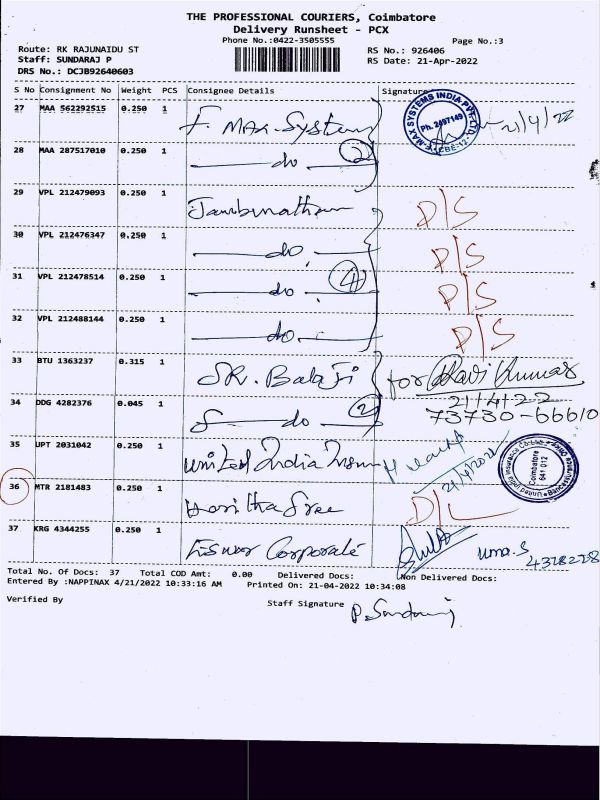 THE PROFESSIONAL COURIERS, Coimbatore
Delivery Runsheet - PCX
Phone No.:0422-3505555
Page No.:3
Route: RK RAJUNAIDU ST
RS No.: 926406
Staff: SUNDARAJ P
RS Date: 21-Apr-2022
DRS No.: DCJB92640603
S No Consignment No Weight PCS Consignee Details Signature
27 MAA 562292515 0.250 1 F. Max-System 21/4/22
F-MAX SYSTEMS INDIA PVT. LTD. Ph: 2497149 CBE-12
28 MAA 287517010 0.250 1 do 2
29 VPL 212479093 0.250 1 D/S
30 VPL 212476347 0.250 1 do. D/S
31 VPL 212478514 0.250 1 do. 4 D/S
32 VPL 212488144 0.250 1 do. D/S
33 BTU 1363237 0.315 1 SR. Balaji for Ravi Kumar
21/4/22
34 DDG 4282376 0.045 1 do 2 73730-66610
35 UPT 2031042 0.250 1 United India Insu
21/4/2022
Coimbatore 641 012
36 MTR 2181483 0.250 1 Haritha Sree D/L
37 KRG 4344255 0.250 1 Eswar Corporate Uma.S
4328228
Total No. Of Docs: 37 Total COD Amt: 0.00 Delivered Docs: Non Delivered Docs:
Entered By :NAPPINAX 4/21/2022 10:33:16 AM Printed On: 21-04-2022 10:34:08
Verified By Staff Signature P. Sundaraj